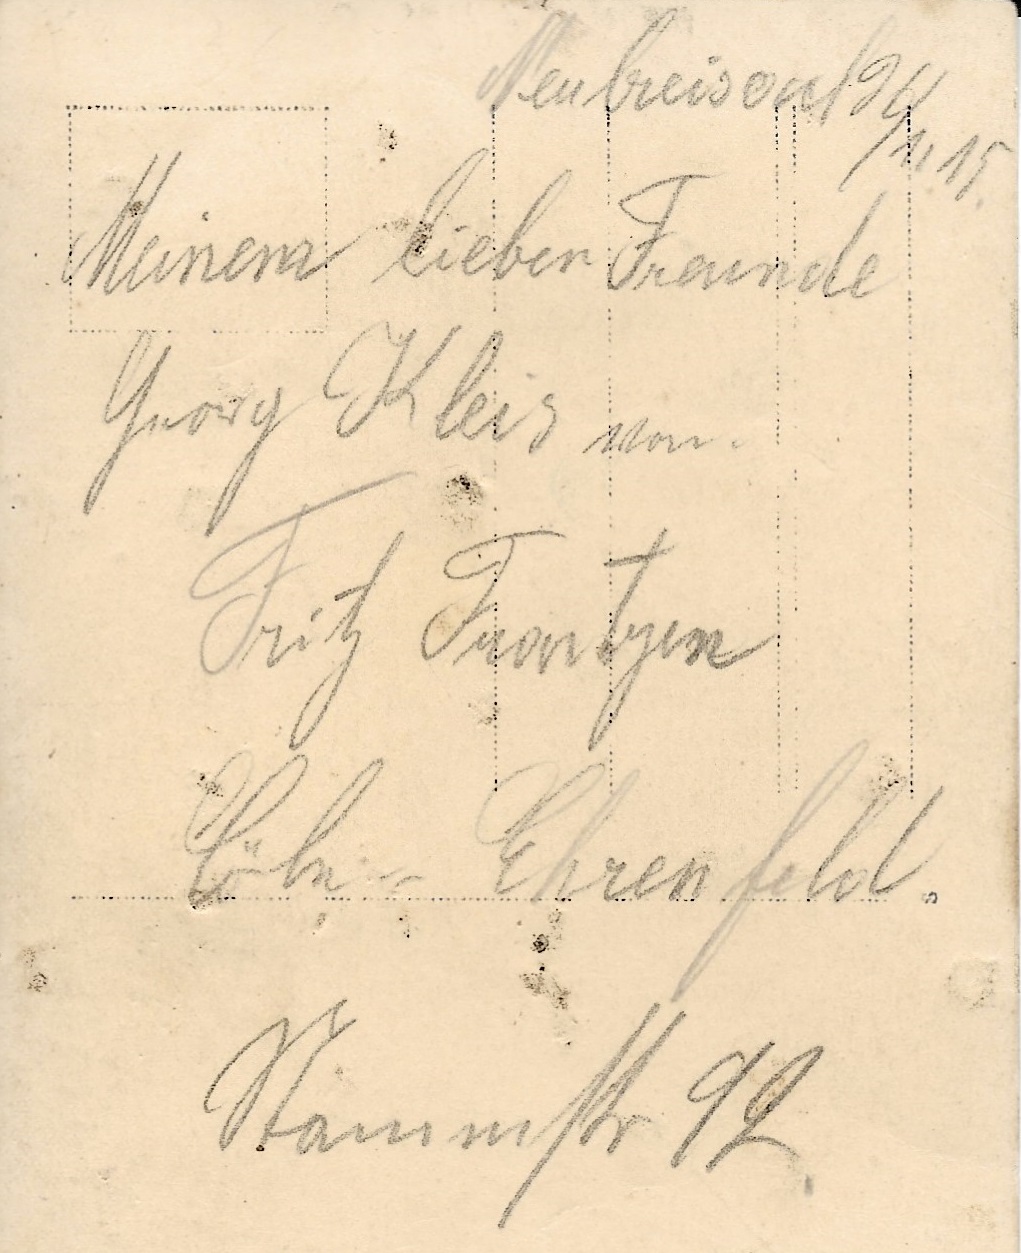 Neubreisach 26/11.15.
Meinem lieber Freunde
Georg Kleis von
Fritz Frantzen
Cöln - Ehrenfeld
Stammstr 92
s